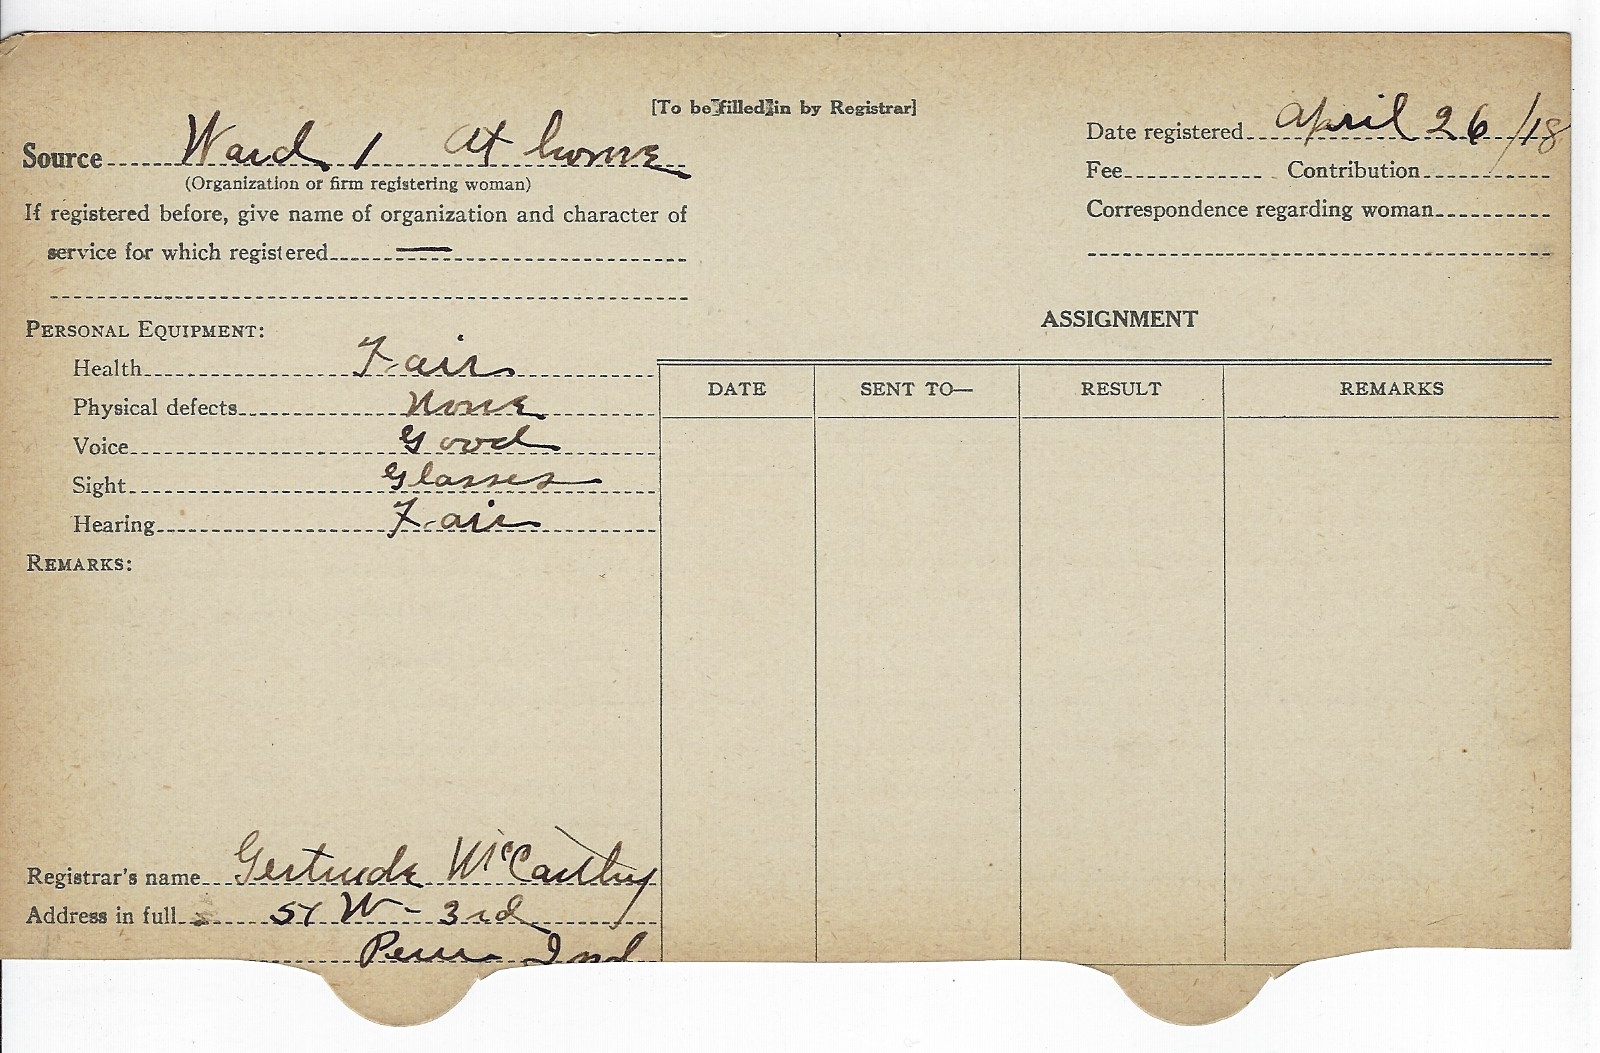 [To be filled in by Registrar]
Source Ward 1 At home
(Organization or firm registering woman)
If registered before, give name of organization and character of
service for which registered —
Date registered April 26/18
Fee Contribution
Correspondence regarding woman
PERSONAL EQUIPMENT:
Health Fair
Physical defects None
Voice Good
Sight Glasses
Hearing Fair
REMARKS:
ASSIGNMENT
DATE SENT TO— RESULT REMARKS
Registrar's name Gertrude McCarthy
Address in full W - 3rd
Peru Ind